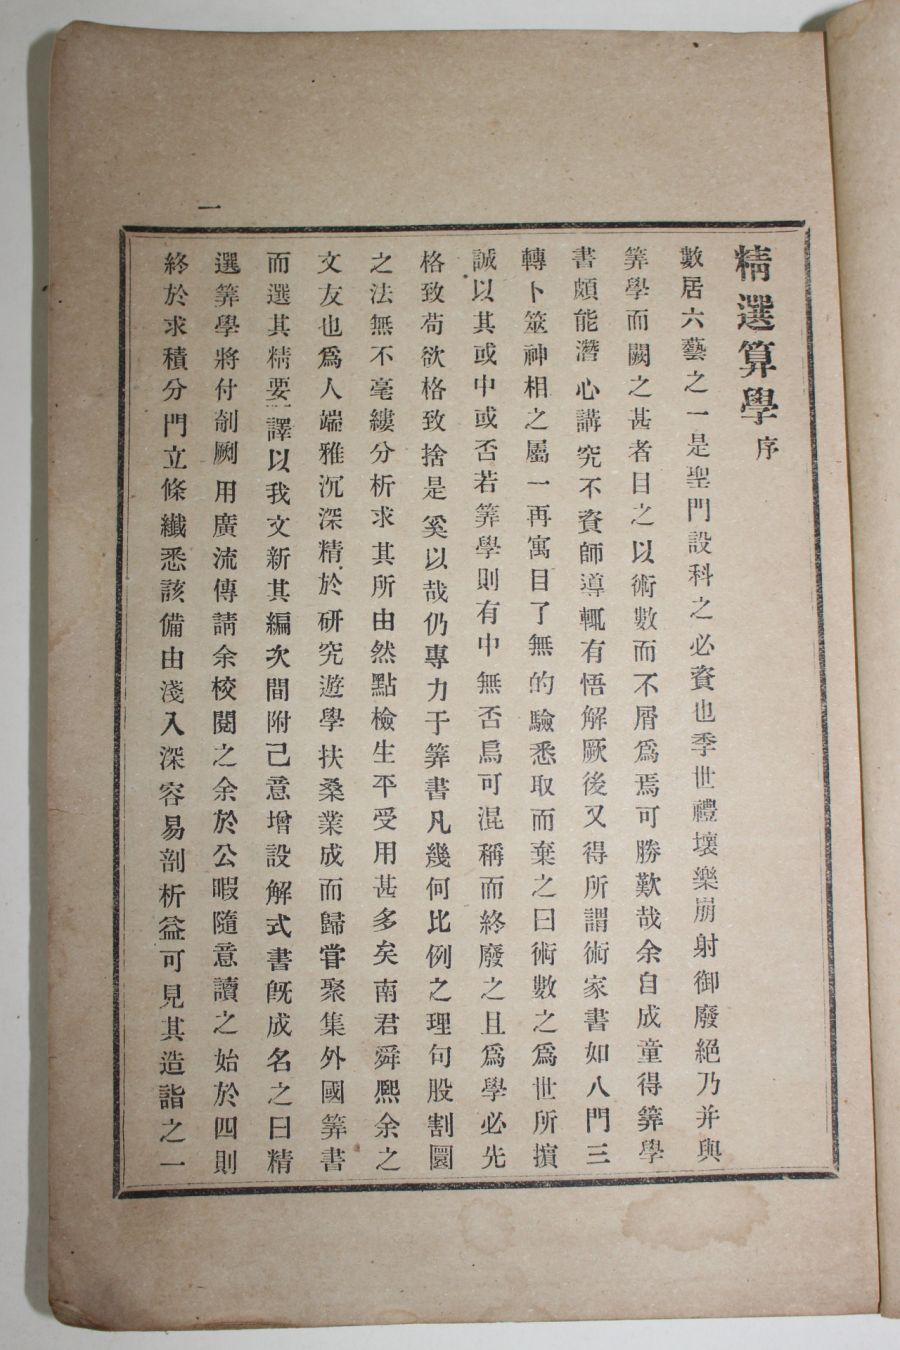 精選算學 序
數居六藝之一是聖門設科之必資也季世禮壞樂崩射御廢絕乃并與
筭學而闕之甚者目之以術數而不屑爲焉可勝歎哉余自成童得筭學
書頗能潛心講究不資師導輒有悟解厥後又得所謂術家書如八門三
轉卜筮神相之屬一再寓目了無的驗悉取而棄之曰術數之爲世所擯
誠以其或中或否若筭學則有中無否烏可混稱而終廢之且爲學必先
格致苟欲格致捨是奚以哉仍專力于筭書凡幾何比例之理句股割圜
之法無不毫縷分析求其所由然點檢生平受用甚多矣南君舜熙余之
文友也爲人端雅沉深精於研究遊學扶桑業成而歸甞聚集外國筭書
而選其精要譯以我文新其編次間附己意增設解式書旣成名之曰精
選筭學將付剞劂用廣流傳請余校閱之余於公暇隨意讀之始於四則
終於求積分門立條纖悉該備由淺入深容易剖析益可見其造詣之一
一